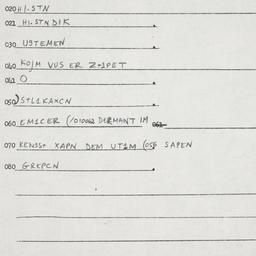 020 HI.STN
021 HI.STNDIK
030 USTEMEN
040 KOJM VUS ER Z+1PET
041 O
050 S+L1KAXCN
060 EM1CER (/010062 DERMANT IM
070 KENSS+ XAPN DEM UT1M (05 SAPEN
080 GREPCN